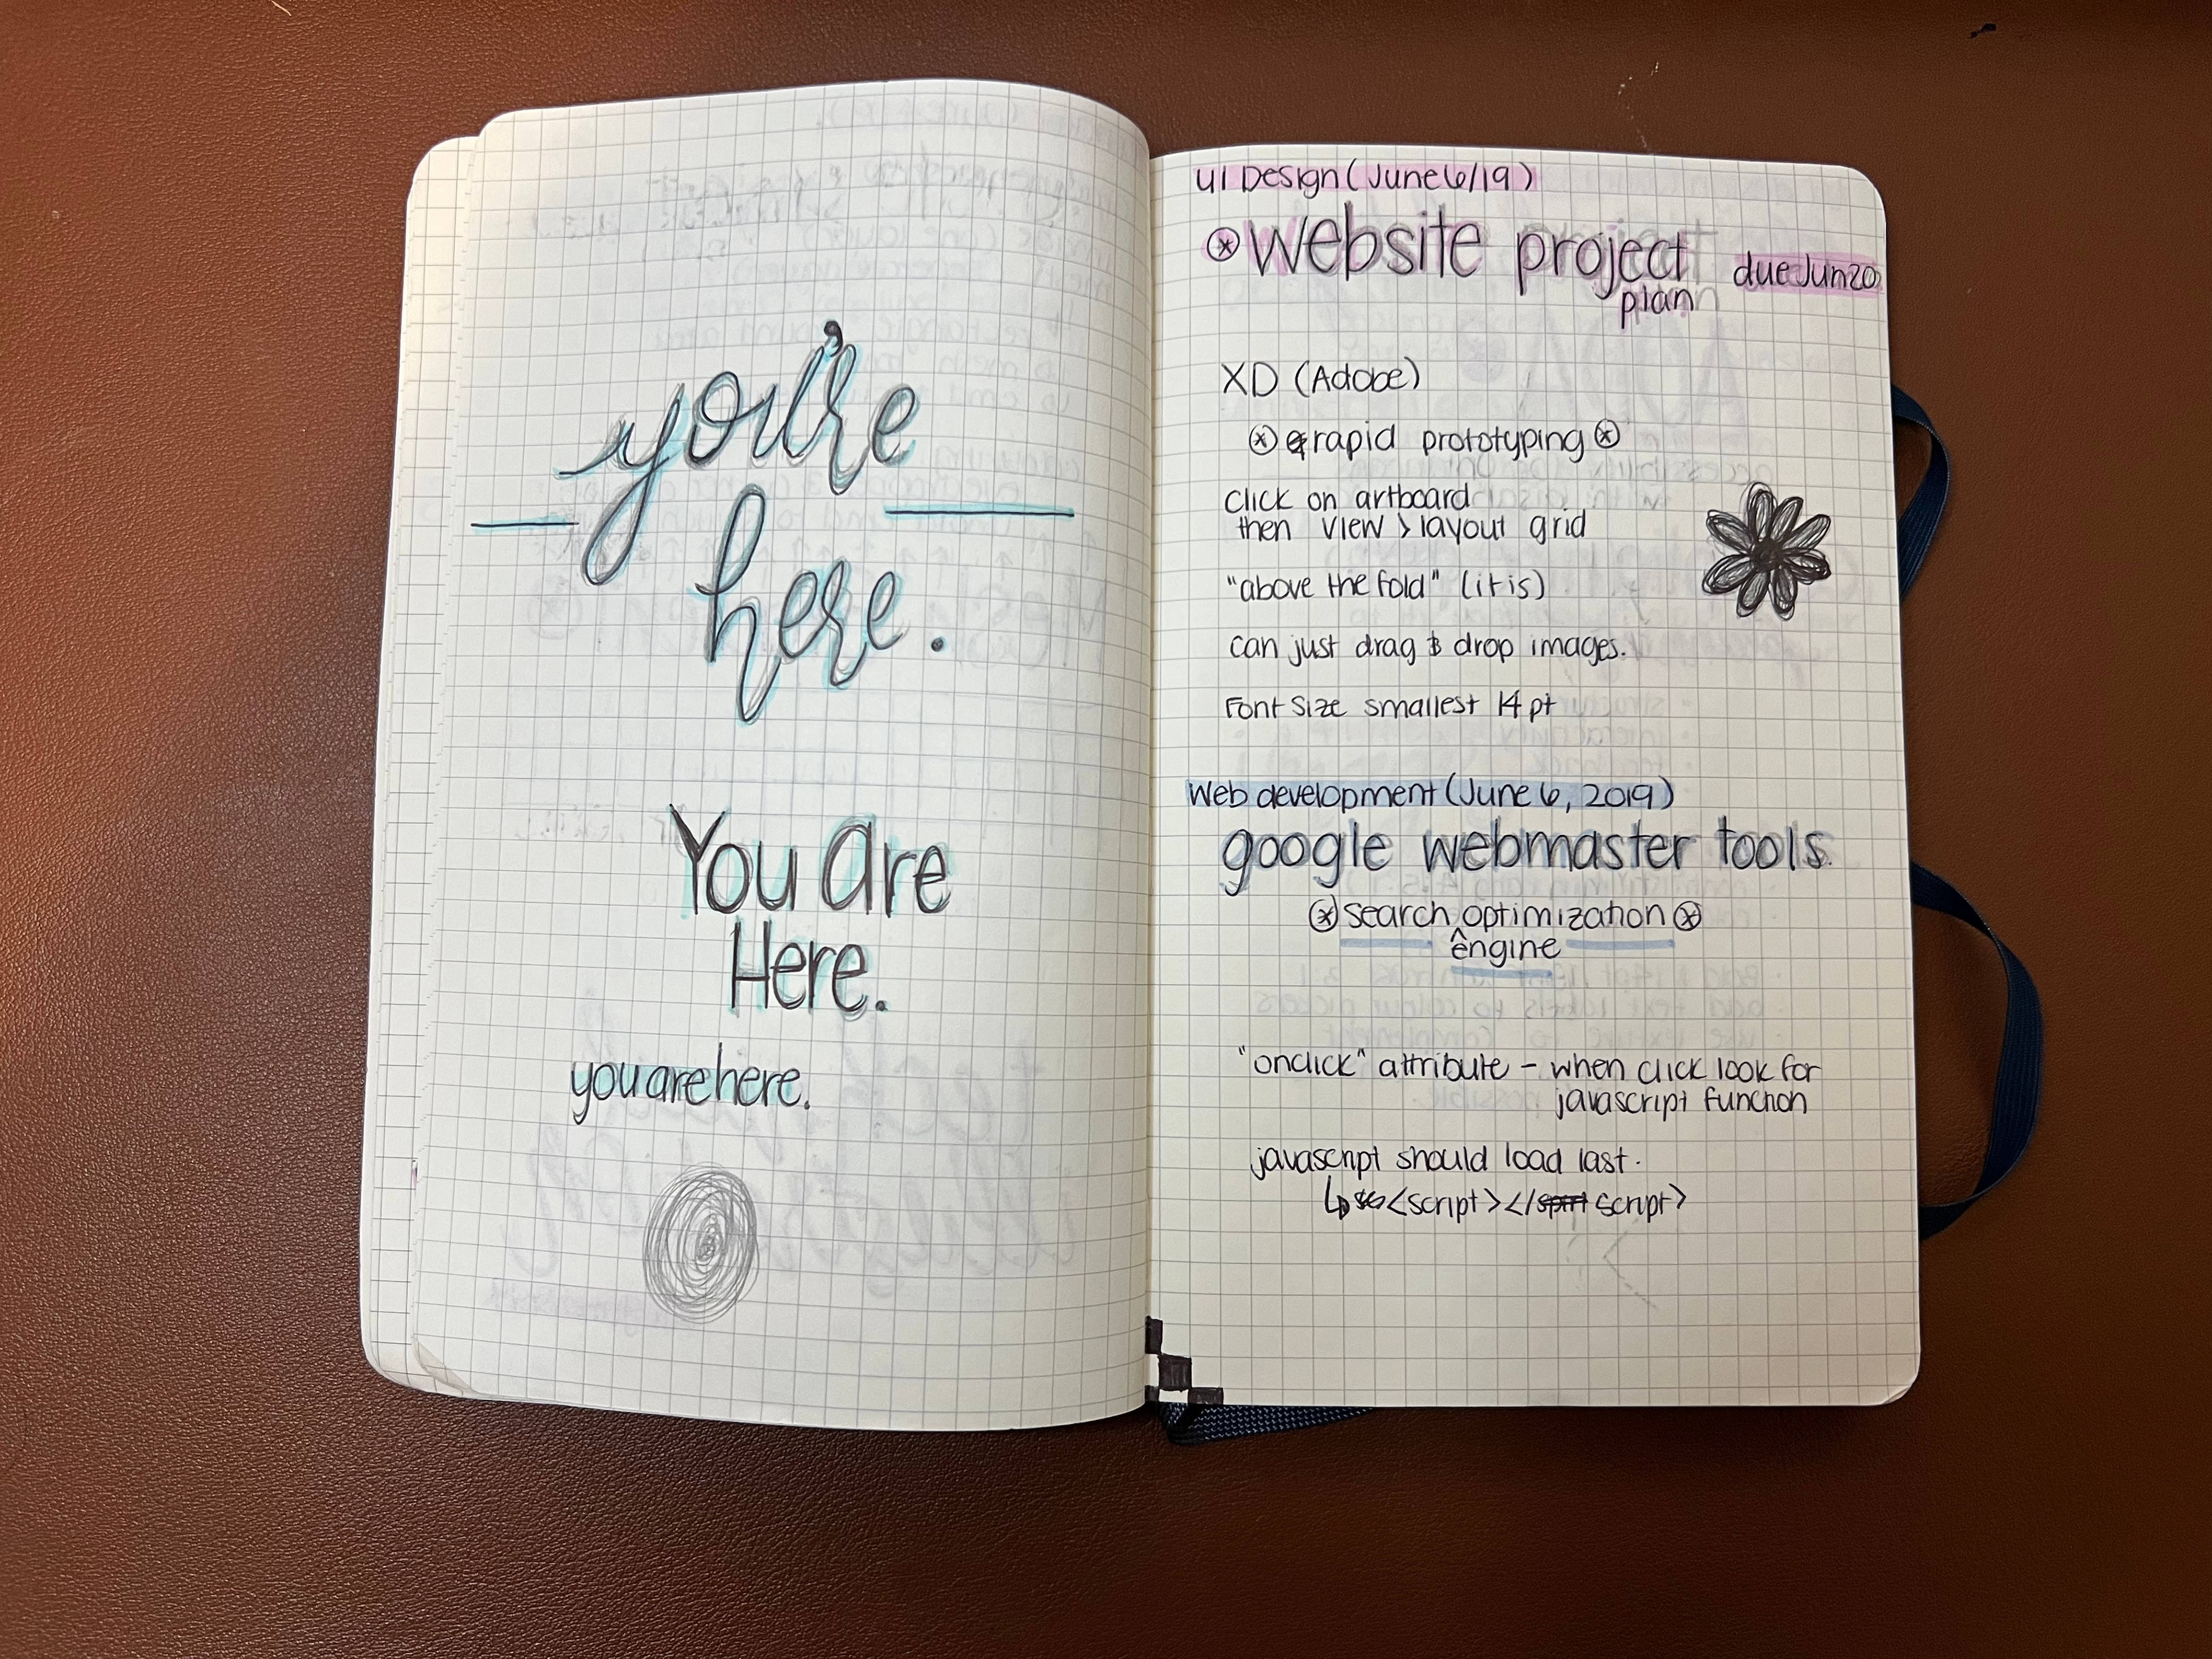 you're
here.
You are
Here.
you are here.
UI Design (June 6/19)
website project
plan
due Jun 20
XD (Adobe)
rapid prototyping
click on artboard
then view > layout grid
"above the fold" (it is)
can just drag & drop images.
Font size smallest 14 pt
Web development (June 6, 2019)
google webmaster tools.
search optimization
^engine
"onclick" attribute - when click look for
javascript function
javascript should load last.
↳ <script></script>